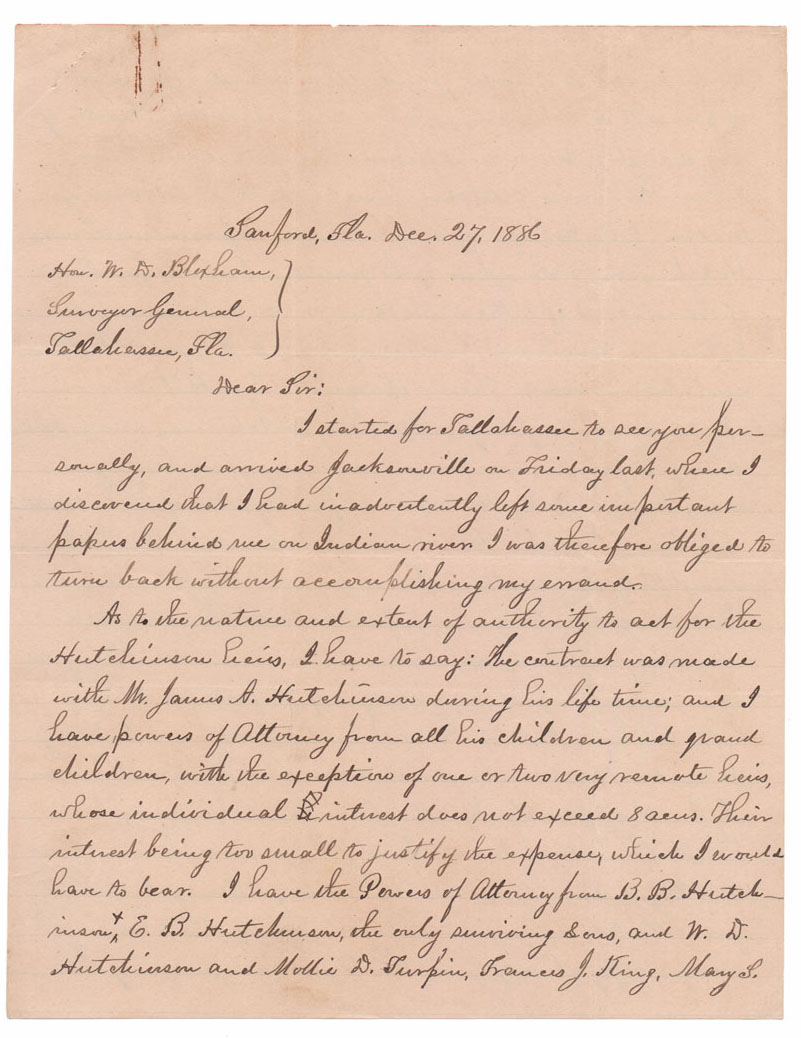 Sanford, Fla. Dec. 27, 1886
Hon. W. D. Bloxham,
Surveyor General,
Tallahassee, Fla.
Dear Sir:
I started for Tallahassee to see you per-
sonally, and arrived Jacksonville on Friday last, where I
discovered that I had inadvertently left some important
papers behind me on Indian river. I was therefore obliged to
turn back without accomplishing my errand.
As to the nature and extent of authority to act for the
Hutchinson heirs, I have to say: The contract was made
with Mr. James A. Hutchinson during his life time; and I
have powers of Attorney from all his children and grand
children, with the exception of one or two very remote heirs,
whose individual interest does not exceed 8 acres. Their
interest being too small to justify the expense, which I would
have to bear. I have the Powers of Attorney from B. B. Hutch-
inson + E. B. Hutchinson, the only surviving Sons, and W. D.
Hutchinson and Mollie D. Turpin, Frances J. King, Mary S.